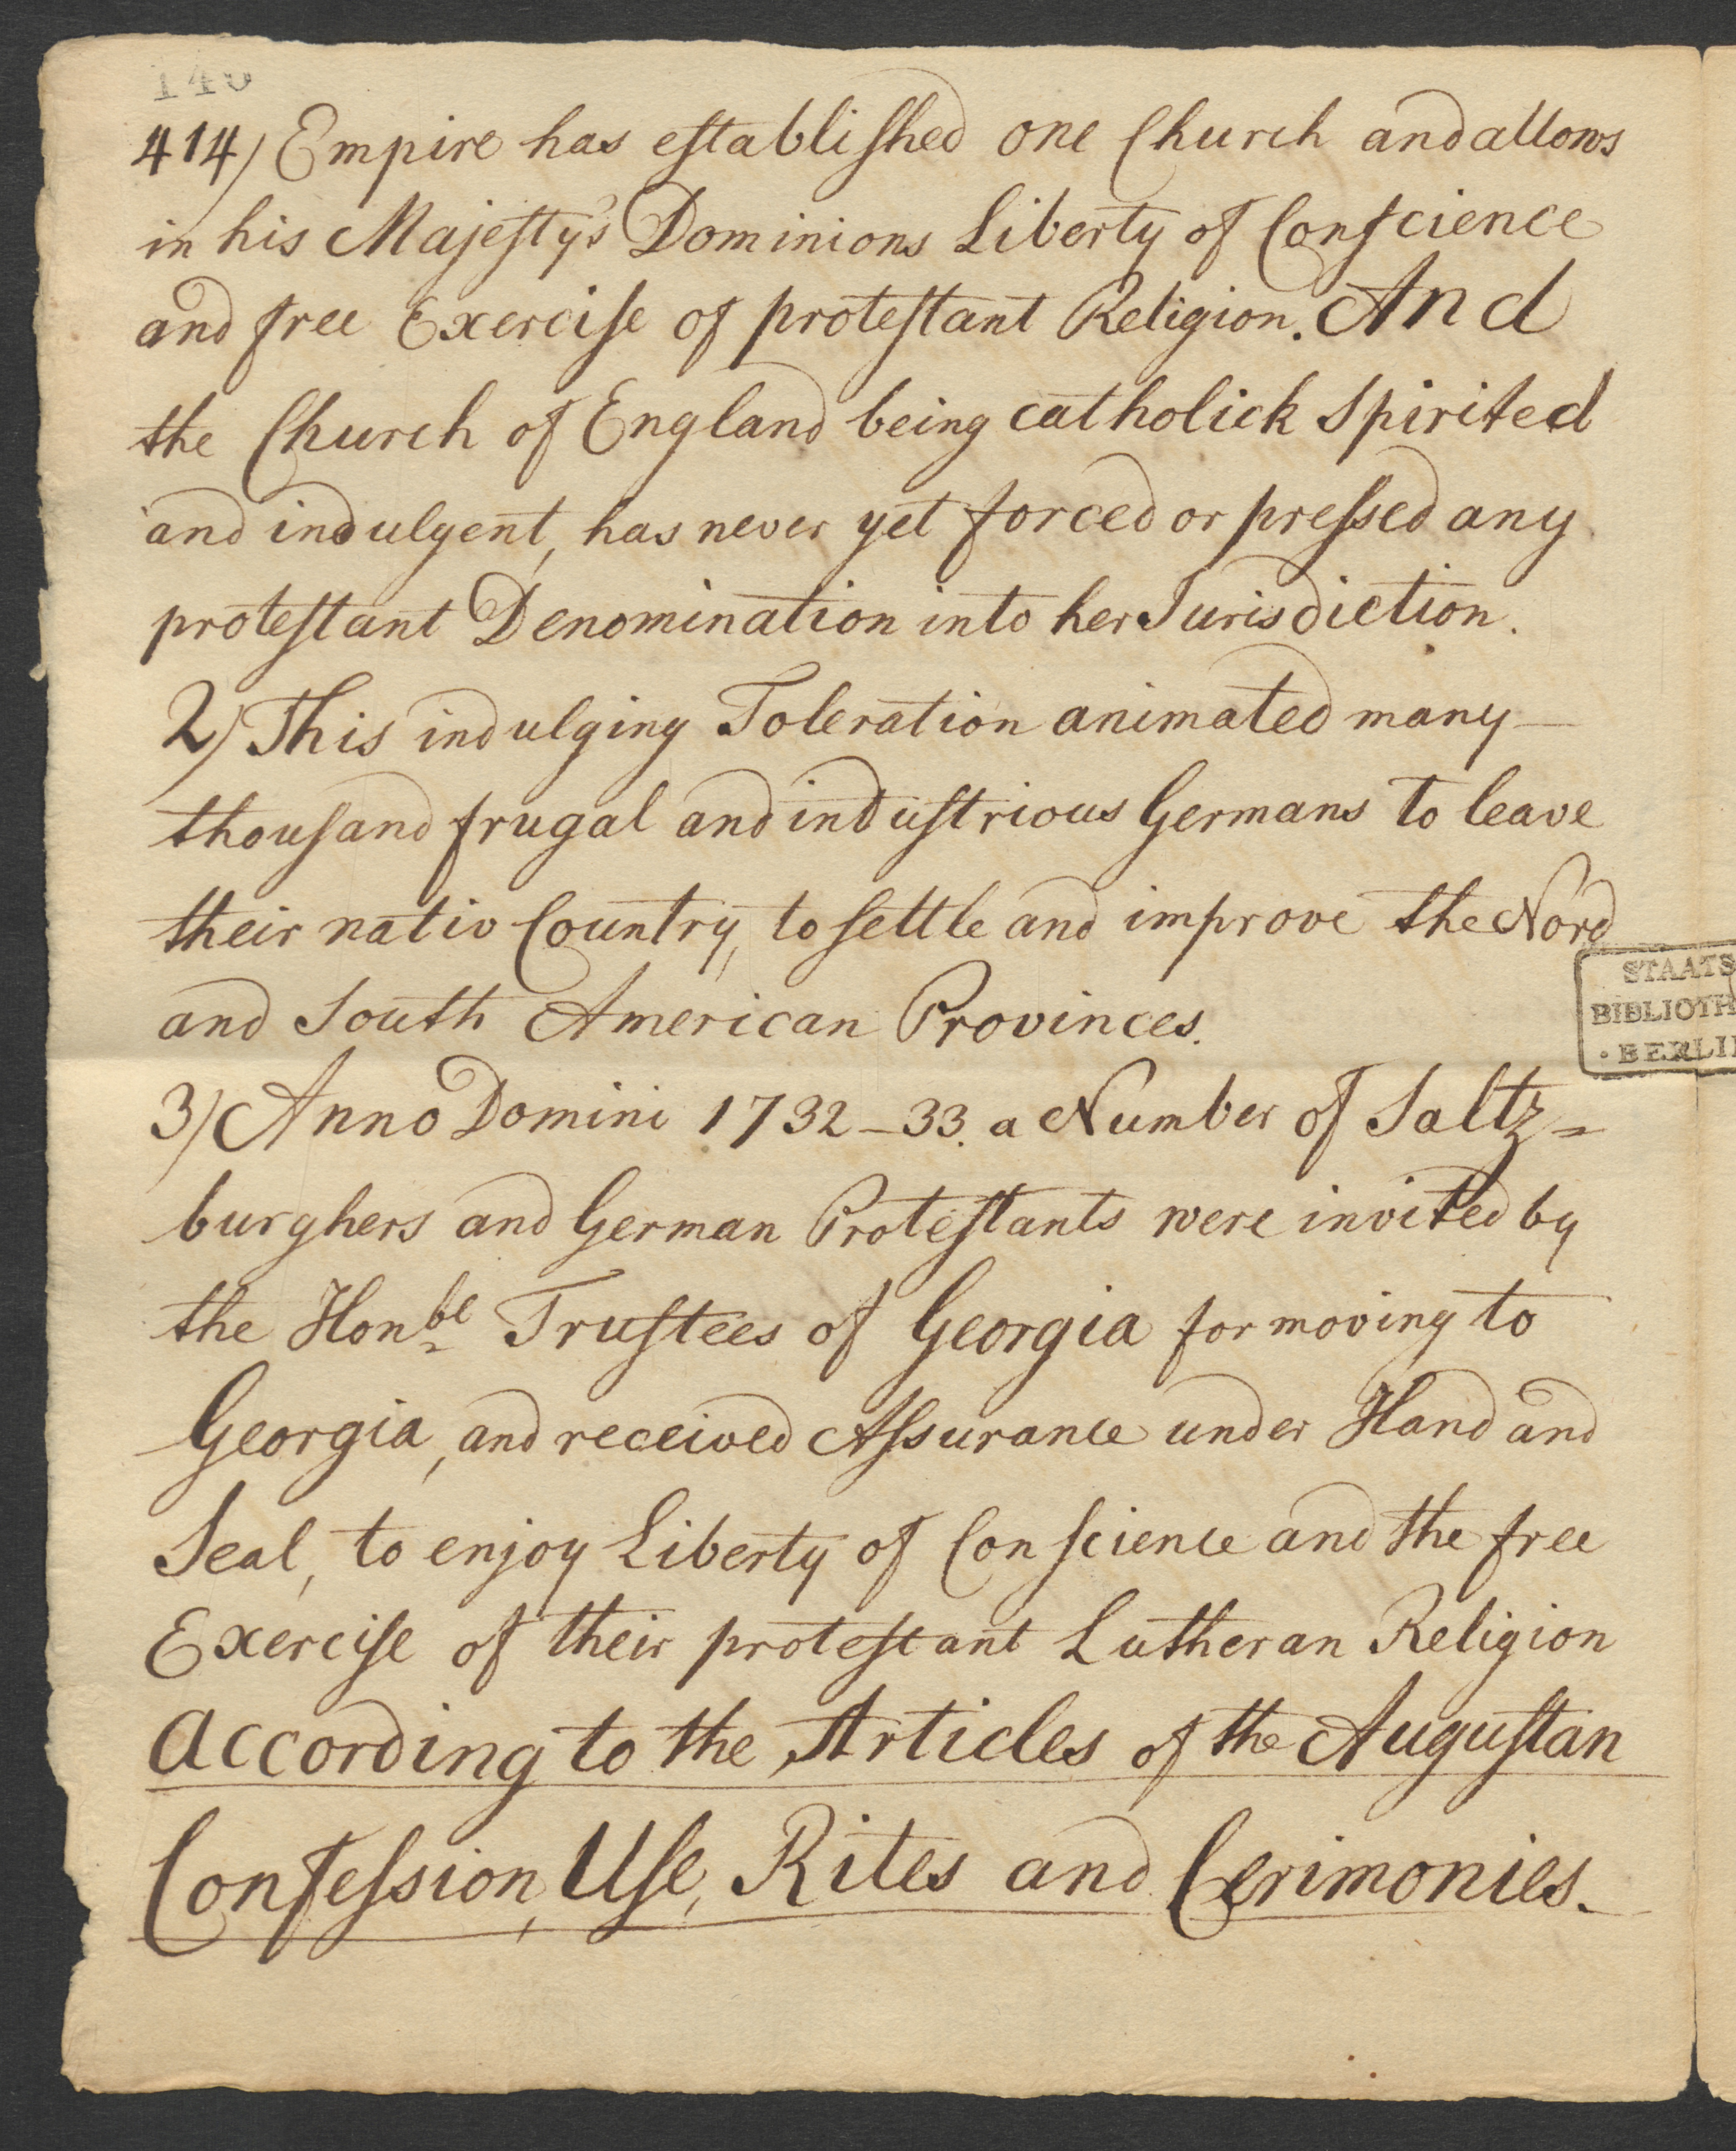 414) Empire has eſtabliſhed one Church and allows
in his Majeſty's Dominions Liberty of Conſcience
and free Exerciſe of proteſtant Religion. And
the Church of England being catholick Spirited
and indulgent, has never yet forced or preſsed any
proteſtant Denomination into her Jurisdiction.
2) This indulging Toleration animated many—
thouſand frugal and induſtrious Germans to leave
their nativ Country, to ſettle and improve the Nord
and South American Provinces.
3) Anno Domini 1732–33. a Number of Saltz=
burghers and German Proteſtants were invited by
the Honble Truſtees of Georgia for moving to
Georgia, and received Aſsurance under Hand and
Seal, to enjoy Liberty of Conſcience and the free
Exerciſe of their proteſtant Lutheran Religion
according to the Articles of the Auguſtan
Confeſsion, Uſe, Rites and Cerimonies.
STAATS
BIBLIOTH
BERLI